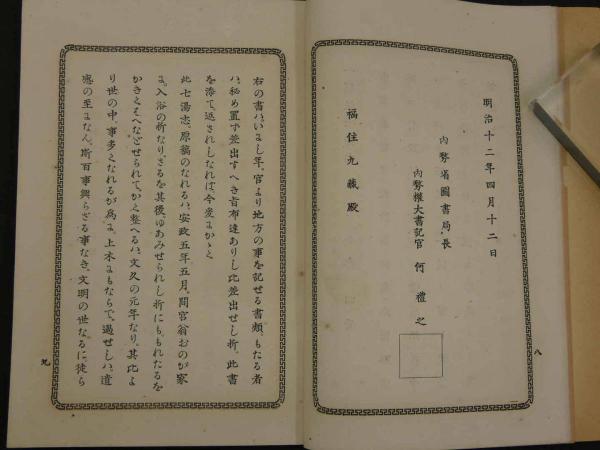 明治十二年四月十二日
內務省圖書局長
內務權大書記官 何禮之
福住九藏殿
八
右の書ハいまし年官より地方の事を記せる書類もたる者
ハ秘め置ず差出すへき旨布達ありし比差出せし折此書
を添て返されしなれは今爰にかゝく
此七湯志原稿のなれるハ安政五年五月間宮翁おのが家
に入浴の折なりさるを其後ゆあみせられし折にももれたるを
かきくはへなどせられてかき整へるハ文久の元年なり其比よ
り世の中事多くなれるが爲に上木にもならで過せしハ遺
憾の至になん斯百事興らざる事なき文明の世なるに徒ら
九